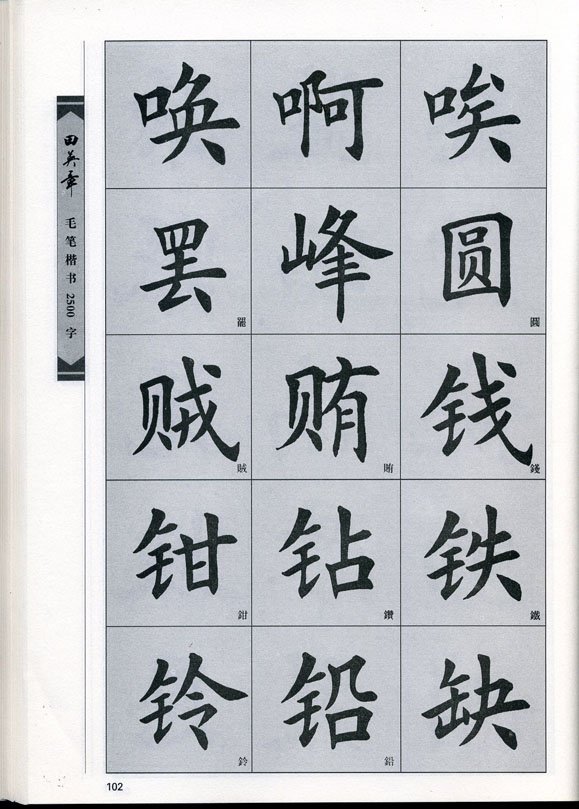 田英章 毛笔楷书 2500 字
唤 啊 唉
罢 峰 圆
罷 圓
贼 贿 钱
賊 賄 錢
钳 钻 铁
鉗 鑽 鐵
铃 铅 缺
鈴 鉛
102